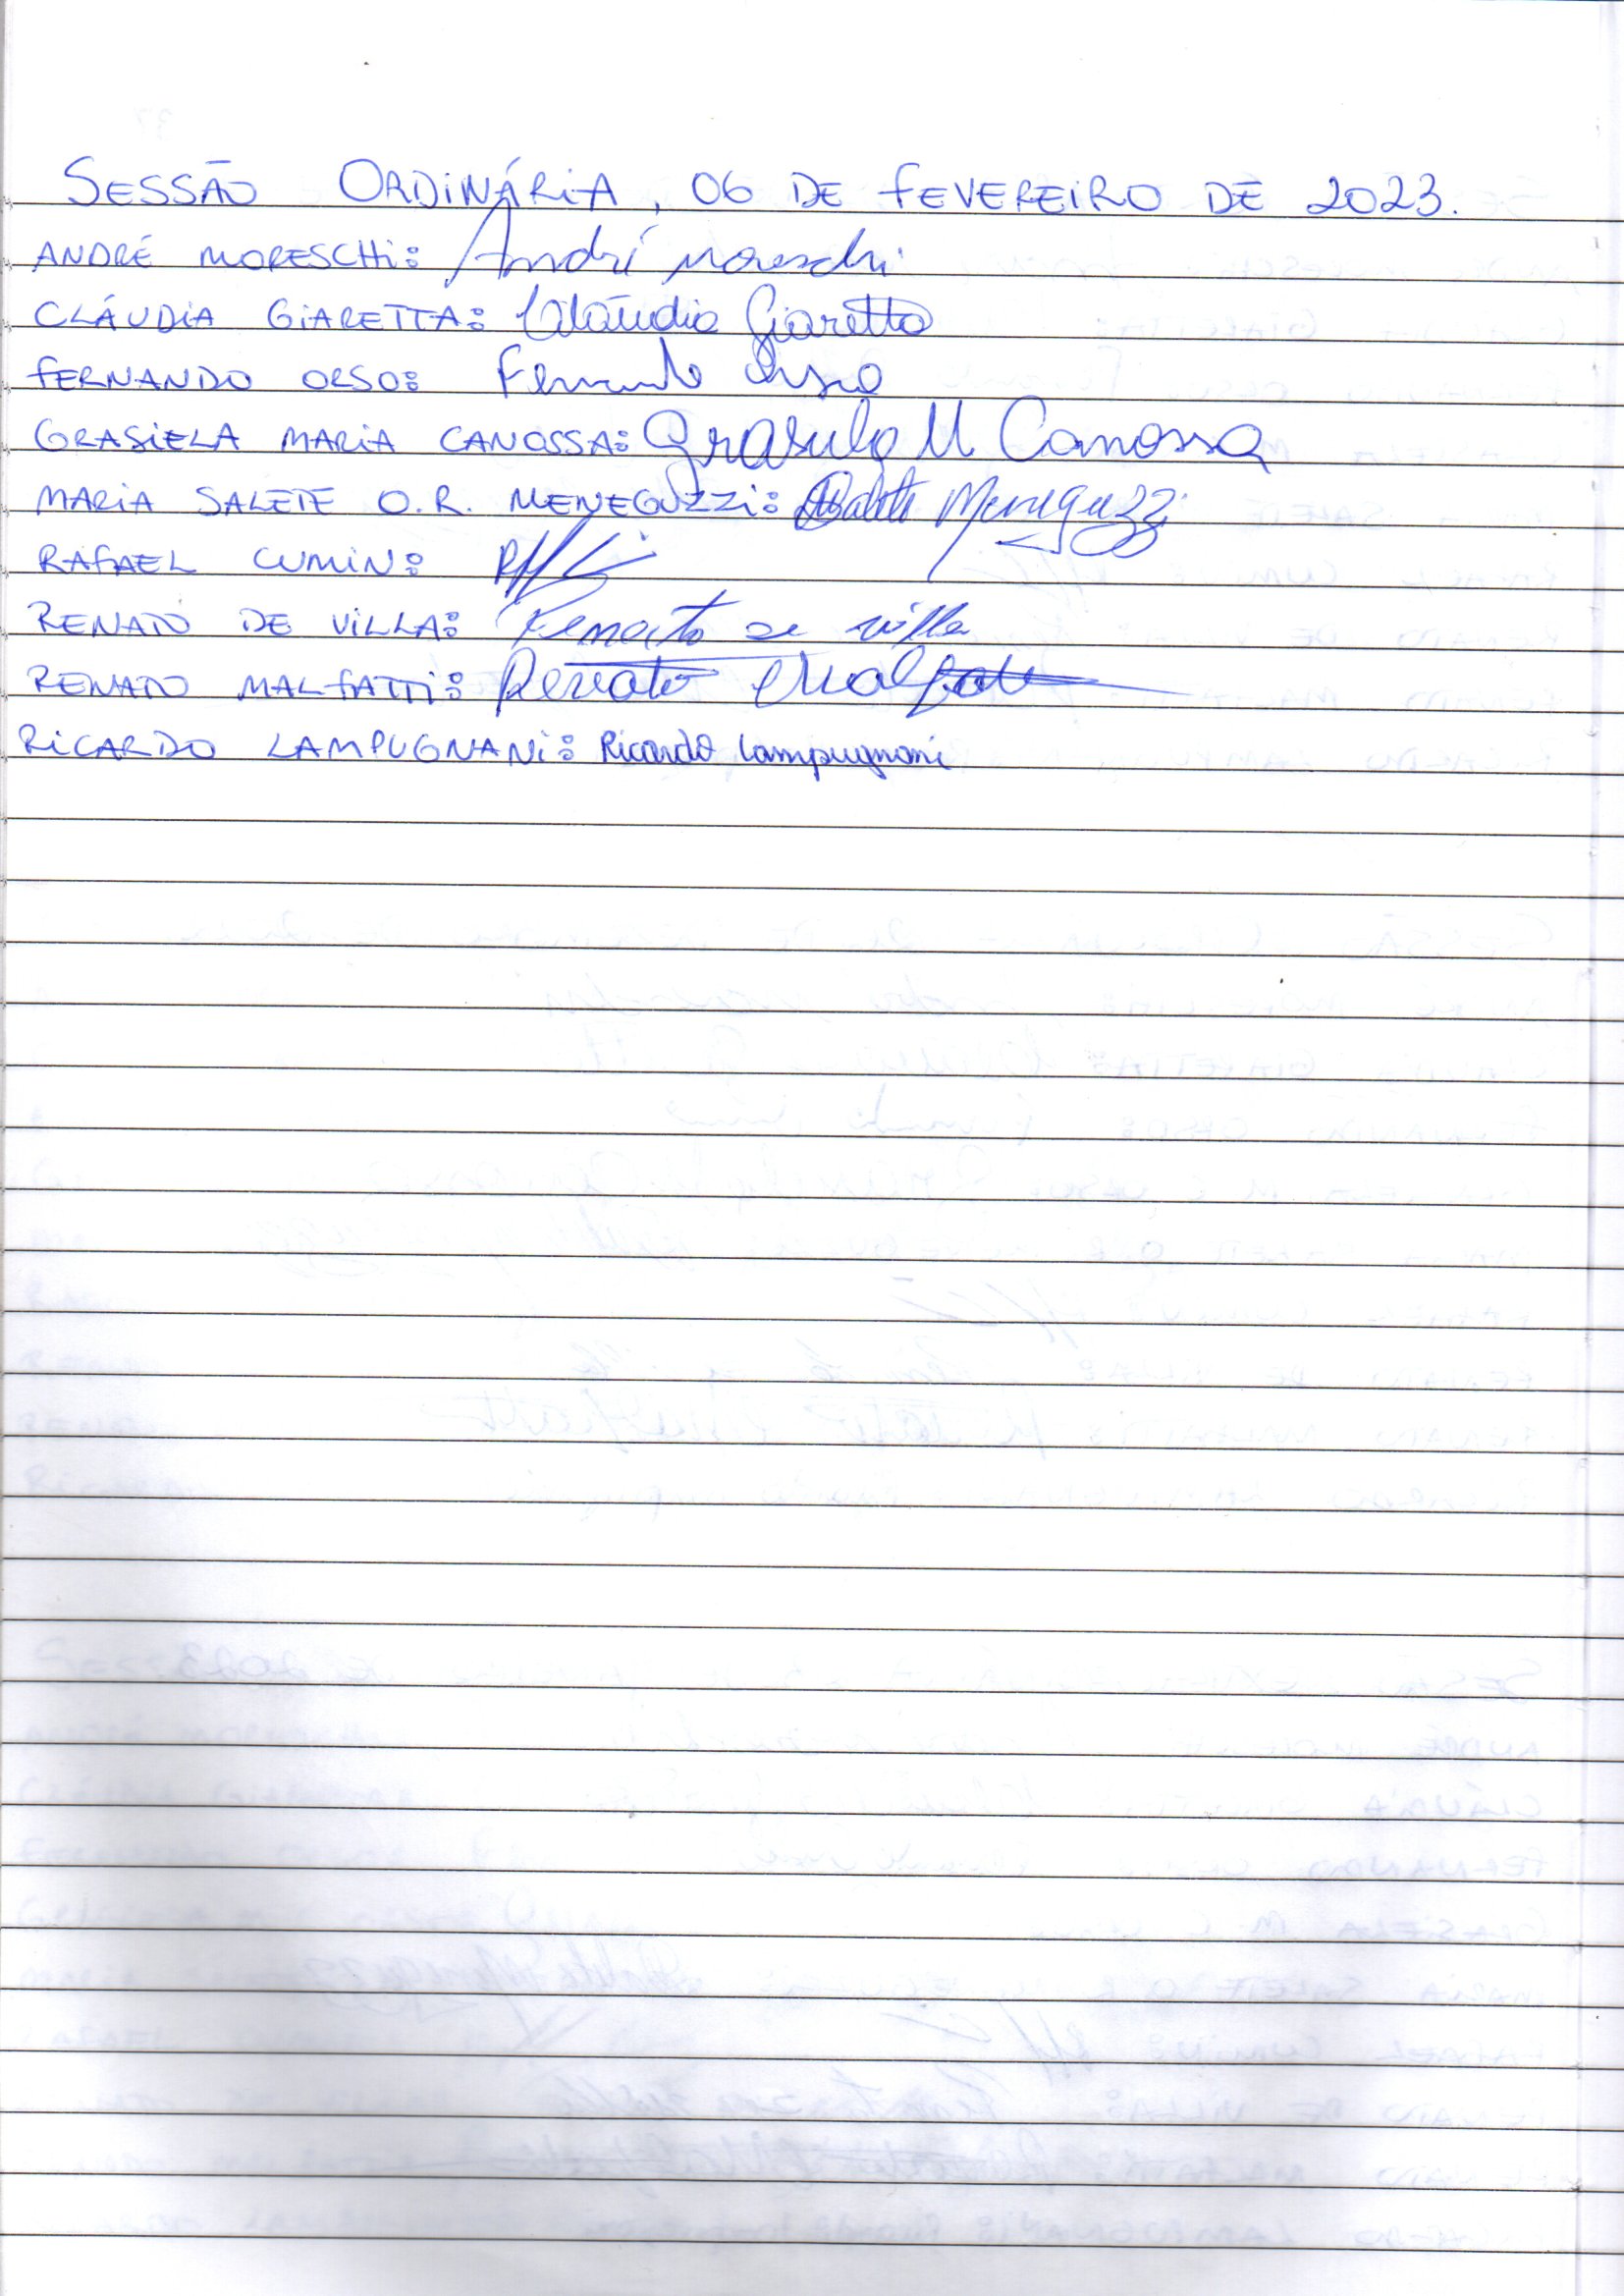 SESSÃO ORDINÁRIA, 06 DE FEVEREIRO DE 2023.
ANDRÉ MORESCHI: André Moreschi
CLÁUDIA GIARETTA: Cláudia Giaretta
FERNANDO ORSO: Fernando Orso
GRASIELA MARIA CANOSSA: Grasiela M Canossa
MARIA SALETE O.R. MENEGUZZI: Salete Meneguzzi
RAFAEL CUMIN:
RENATO DE VILLA: Renato de villa
RENATO MALFATTI: Renato Malfatti
RICARDO LAMPUGNANI: Ricardo Lampugnani